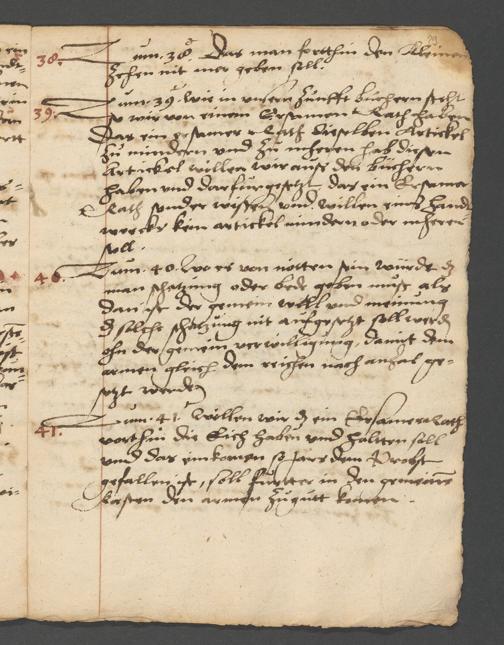 38. Zum. 38. Das man fortthin den Kleinen
Zehen nit mer geben soll.
39. Zum 39. Wie in unsern Zunfft büchern steht
so wir von einem Ersamen Rath haben
das ein ersamer Rath dieselben Artickel
zu mindern und zu meheren hab diesen
Artickel wöllen wir auss den büchern
haben und darfür gesetzt das ein Ersamer
Rath sunder wissen und willen eins handt
wercks kein artickel mindern oder meheren
soll.
40. Zum. 40. Wo es von nötten sein würde dz
man schatzung oder bede geben muse als
dan ist der gemein will und meinung
dz solche schatzung nit auffgesetzt soll werden
ohn der gemein verwilligung, damit dem
armen gleich dem reichen nach anzal ge-
setzt werde
41. Zum. 41. Wöllen wir dz ein Ersamer Rath
vorthin die Eich haben und haltten soll
und das einkomen so jars dem Probst
gefallen ist, soll fürtter in den gemeinen
Kasten den armen zu gutt komen.